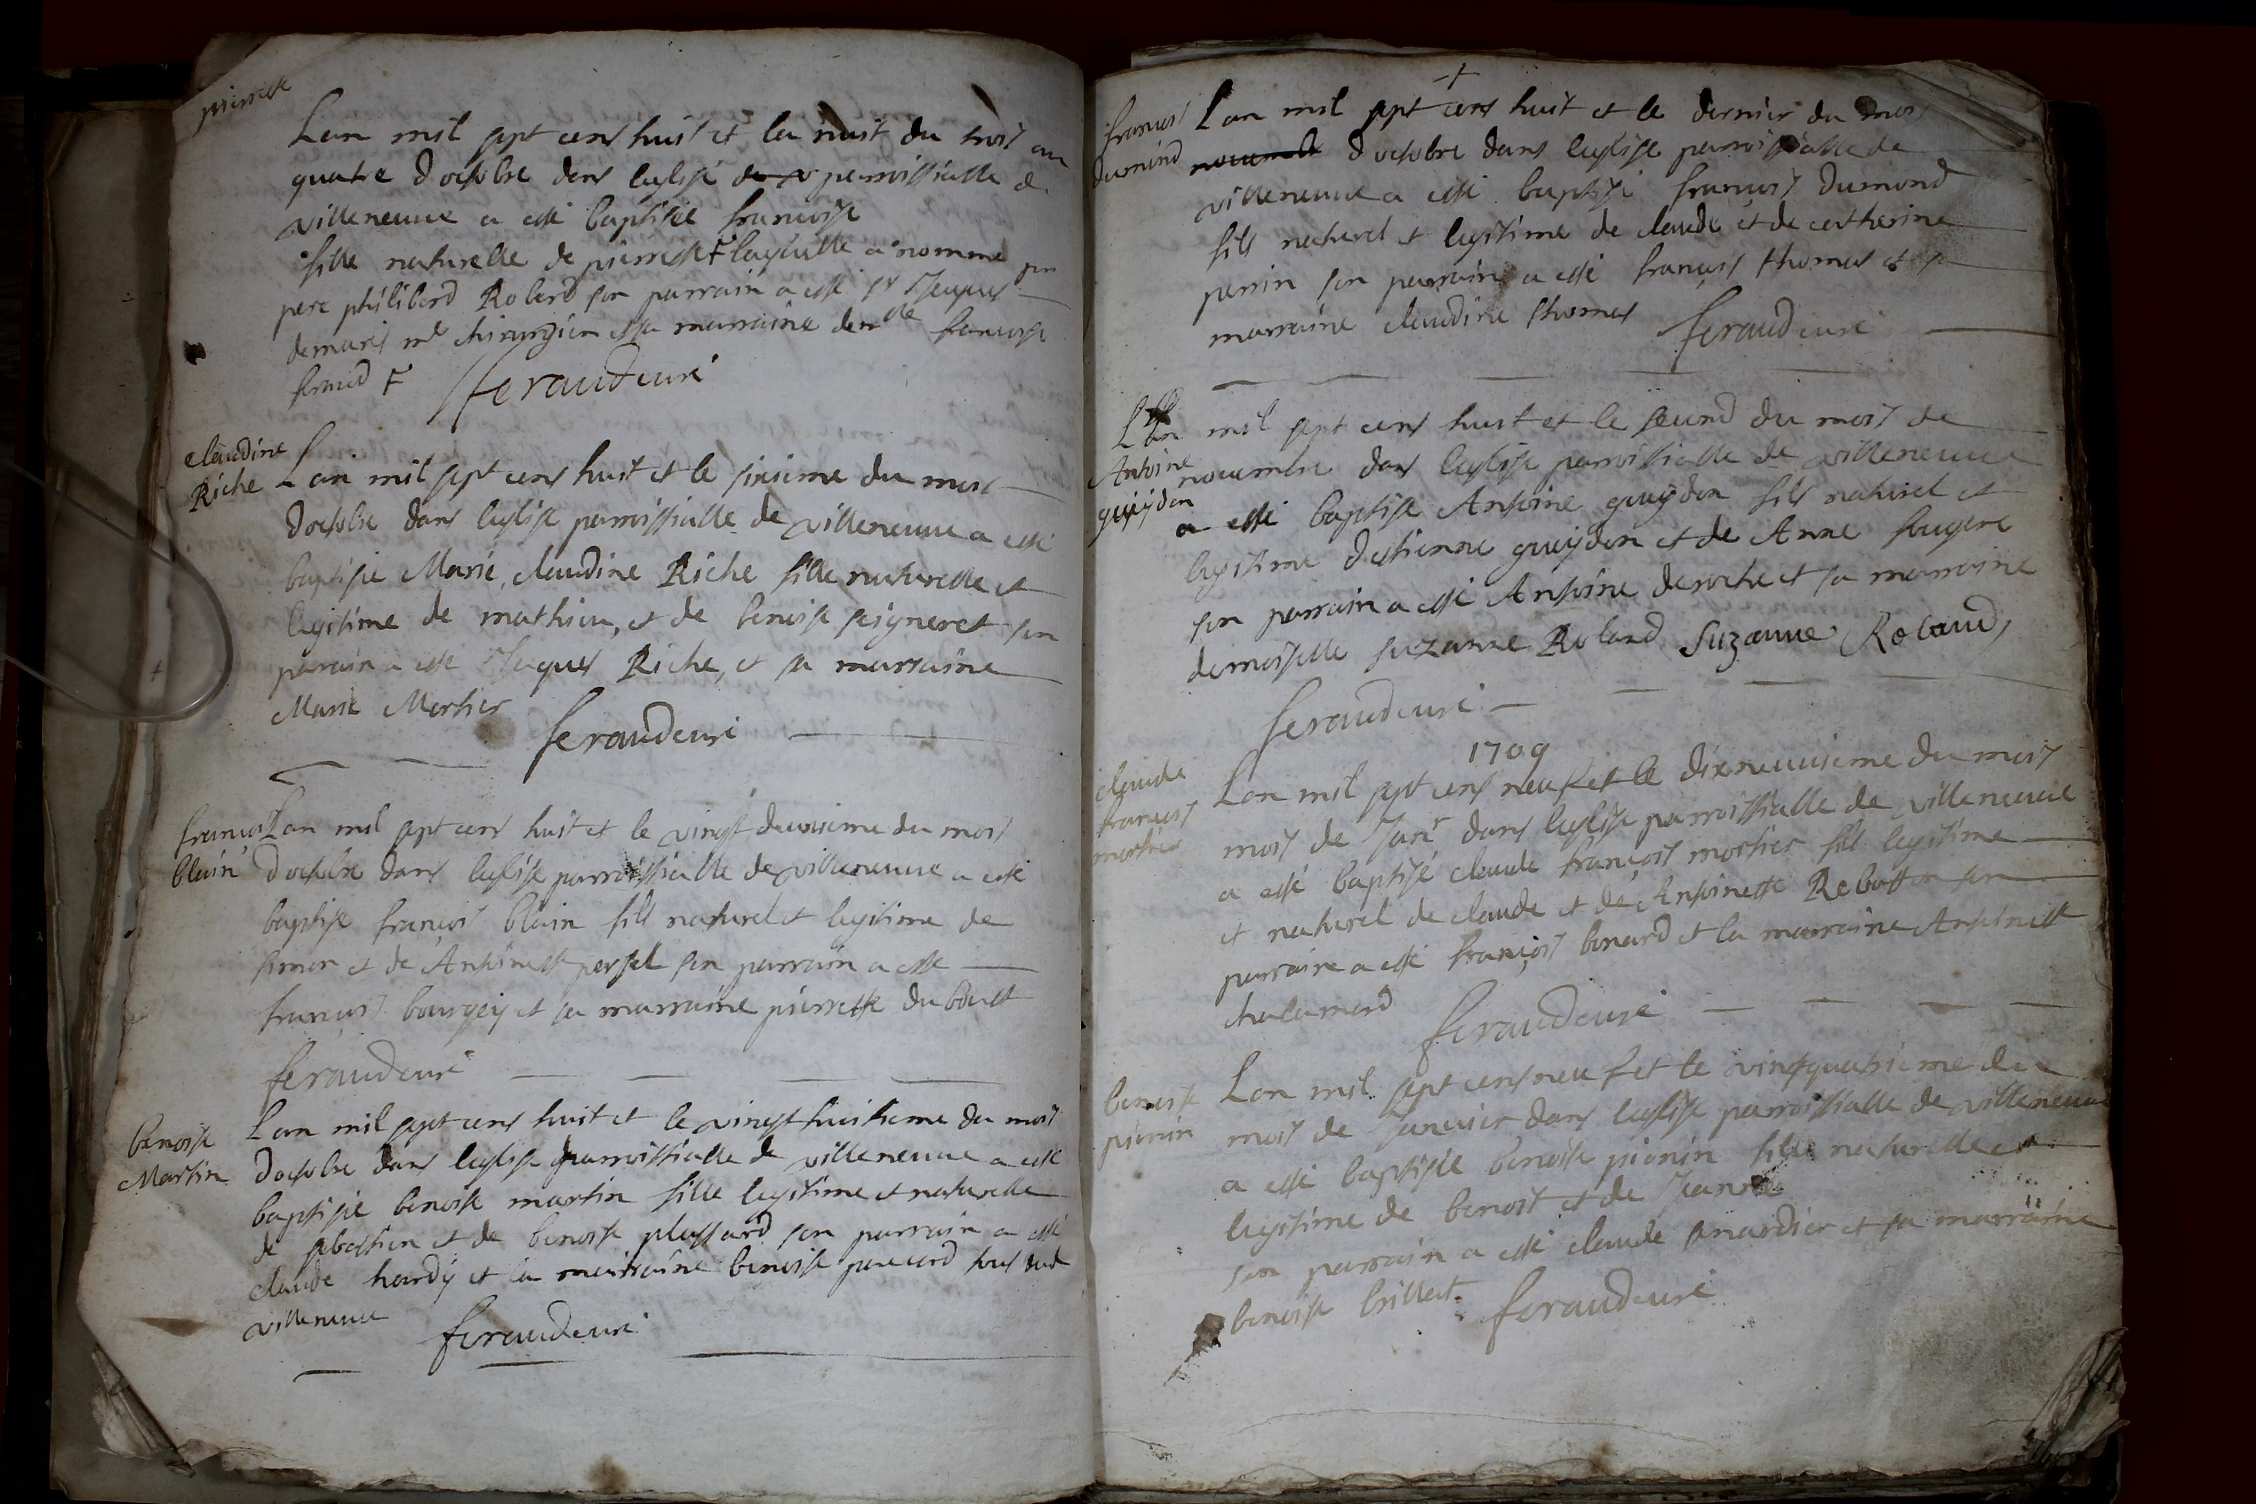 pierrette
Lan mil sept cens huit et la nuit du trois au
quatre doctobre dans leglise parroissialle de
villeneuve a esté baptisée francoise
fille naturelle de pierrette laquelle a nommé pr
pere philibert Roland son parrain a esté sr Jacques
demaris me chirurgien et sa marraine demlle francoise
feraud
feraud curé
claudine
Riche
Lan mil sept cens huit et le sixieme du mois
doctobre dans leglise parroissialle de villeneuve a esté
baptisée Marie claudine Riche fille naturelle et
legitime de mathieu, et de benoiste seigneret son
parain a esté Jaques Riche, et sa marraine
Marie Mortier
feraud curé
francois
blain
Lan mil sept cens huit et le vingt deuxieme du mois
doctobre dans leglise parroissialle de villeneuve a esté
baptisé françois blain fils naturel et legitime de
simon et de Antoinette persel son parrain a esté
françois bourgey et sa marraine pierrette du bouet
feraud curé
benoiste
Martin
Lan mil sept cens huit et le vingt huitieme du mois
doctobre dans leglise parroissialle de villeneuve a esté
baptisée benoiste martin fille legitime et naturelle
de sebastien et de benoiste plassard son parrain a esté
claude hardy et la marraine benoiste tous dud
villeneuve
feraud curé
francois
dumond
Lan mil sept cens huit et le dernier du mois
doctobre dans leglise parroissialle de
villeneuve a esté baptisé francois Dumond
fils naturel et legitime de claude et de catherine
perrin son parrain a esté francois thomas et sa
marraine claudine thomas
feraud curé
Lan mil sept cens huit et le second du mois de
Antoine
gueydon
novembre dans leglise parroissialle de villeneuve
a esté baptisé Antoine gueydon fils naturel et
legitime destienne gueydon et de Anne fougere
son parrain a esté Antoine deroche et sa marraine
demoiselle suzanne Roland Suzanne Roland,
feraud curé
1709
claude
francois
mortier
Lan mil sept cens neuf et le dixneuvieme du mois
mois de Janr dans leglise parroissialle de villeneuve
a esté baptisé claude françois mortier fils legitime
et naturel de claude et de Antoinette Rebotton son
parraine a esté françois benard et la marraine Antoinette
chalamard
feraud curé
benoiste
pionin
Lan mil sept cens neuf et le vingtquatrieme du
mois de Janvier dans leglise parroissialle de villeneuve
a esté baptisée benoiste pionin fille naturelle et
legitime de benoit et de Jeanne
son parrain a esté claude et sa marraine
benoiste brillat
feraud curé